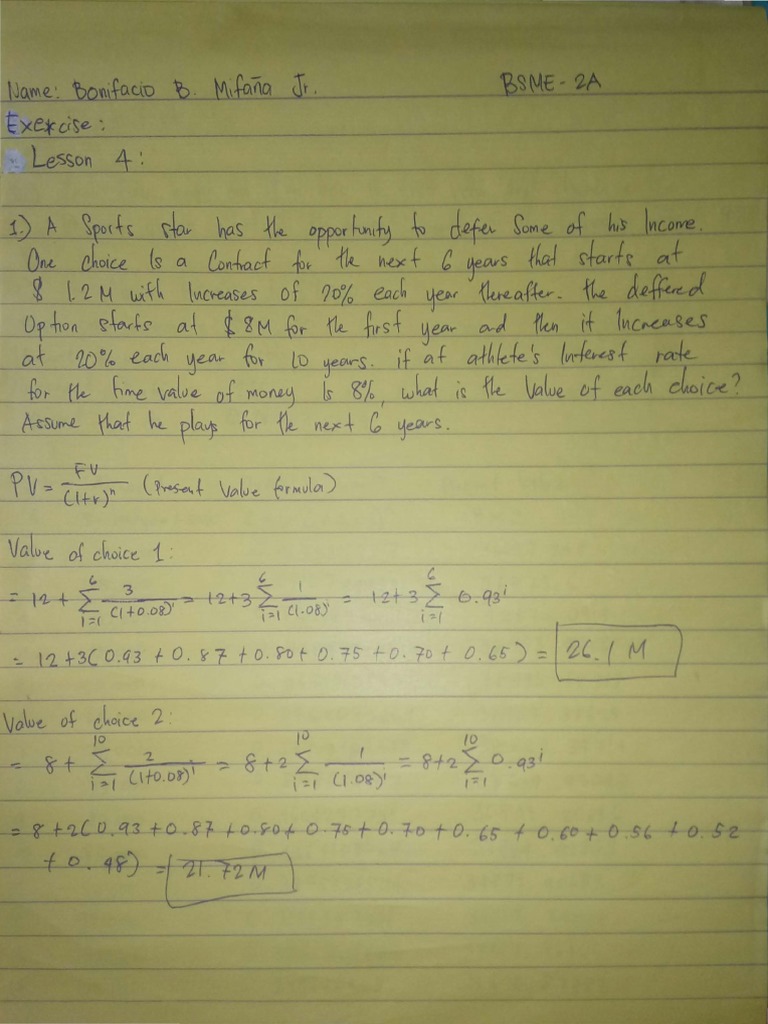 Name: Bonifacio B. Mifaña Jr. BSME - 2A
Exercise:
Lesson 4:
1.) A Sports star has the opportunity to defer Some of his Income.
One choice Is a Contract for the next 6 years that starts at
$ 1.2 M with Increases of 20% each year thereafter. the deffered
Option starts at $ 8M for the first year and then it Increases
at 20% each year for 10 years. if at athlete's Interest rate
for the time value of money Is 8%, what is the Value of each choice?
Assume that he plays for the next 6 years.
PV = FV/(1+r)^n (Present Value formula)
Value of choice 1:
= 12 + 6∑i=1 3/(1+0.08)^i = 12+3 6∑i=1 1/(1.08)^i = 12+3 6∑i=1 0.93^i
= 12+3(0.93 + 0.87 + 0.80 + 0.75 + 0.70 + 0.65) = 26.1 M
Value of choice 2:
= 8 + 10∑i=1 2/(1+0.08)^i = 8+2 10∑i=1 1/(1.08)^i = 8+2 10∑i=1 0.93^i
= 8+2(0.93 + 0.87 + 0.80 + 0.75 + 0.70 + 0.65 + 0.60 + 0.56 + 0.52
+ 0.48) = 21.72 M